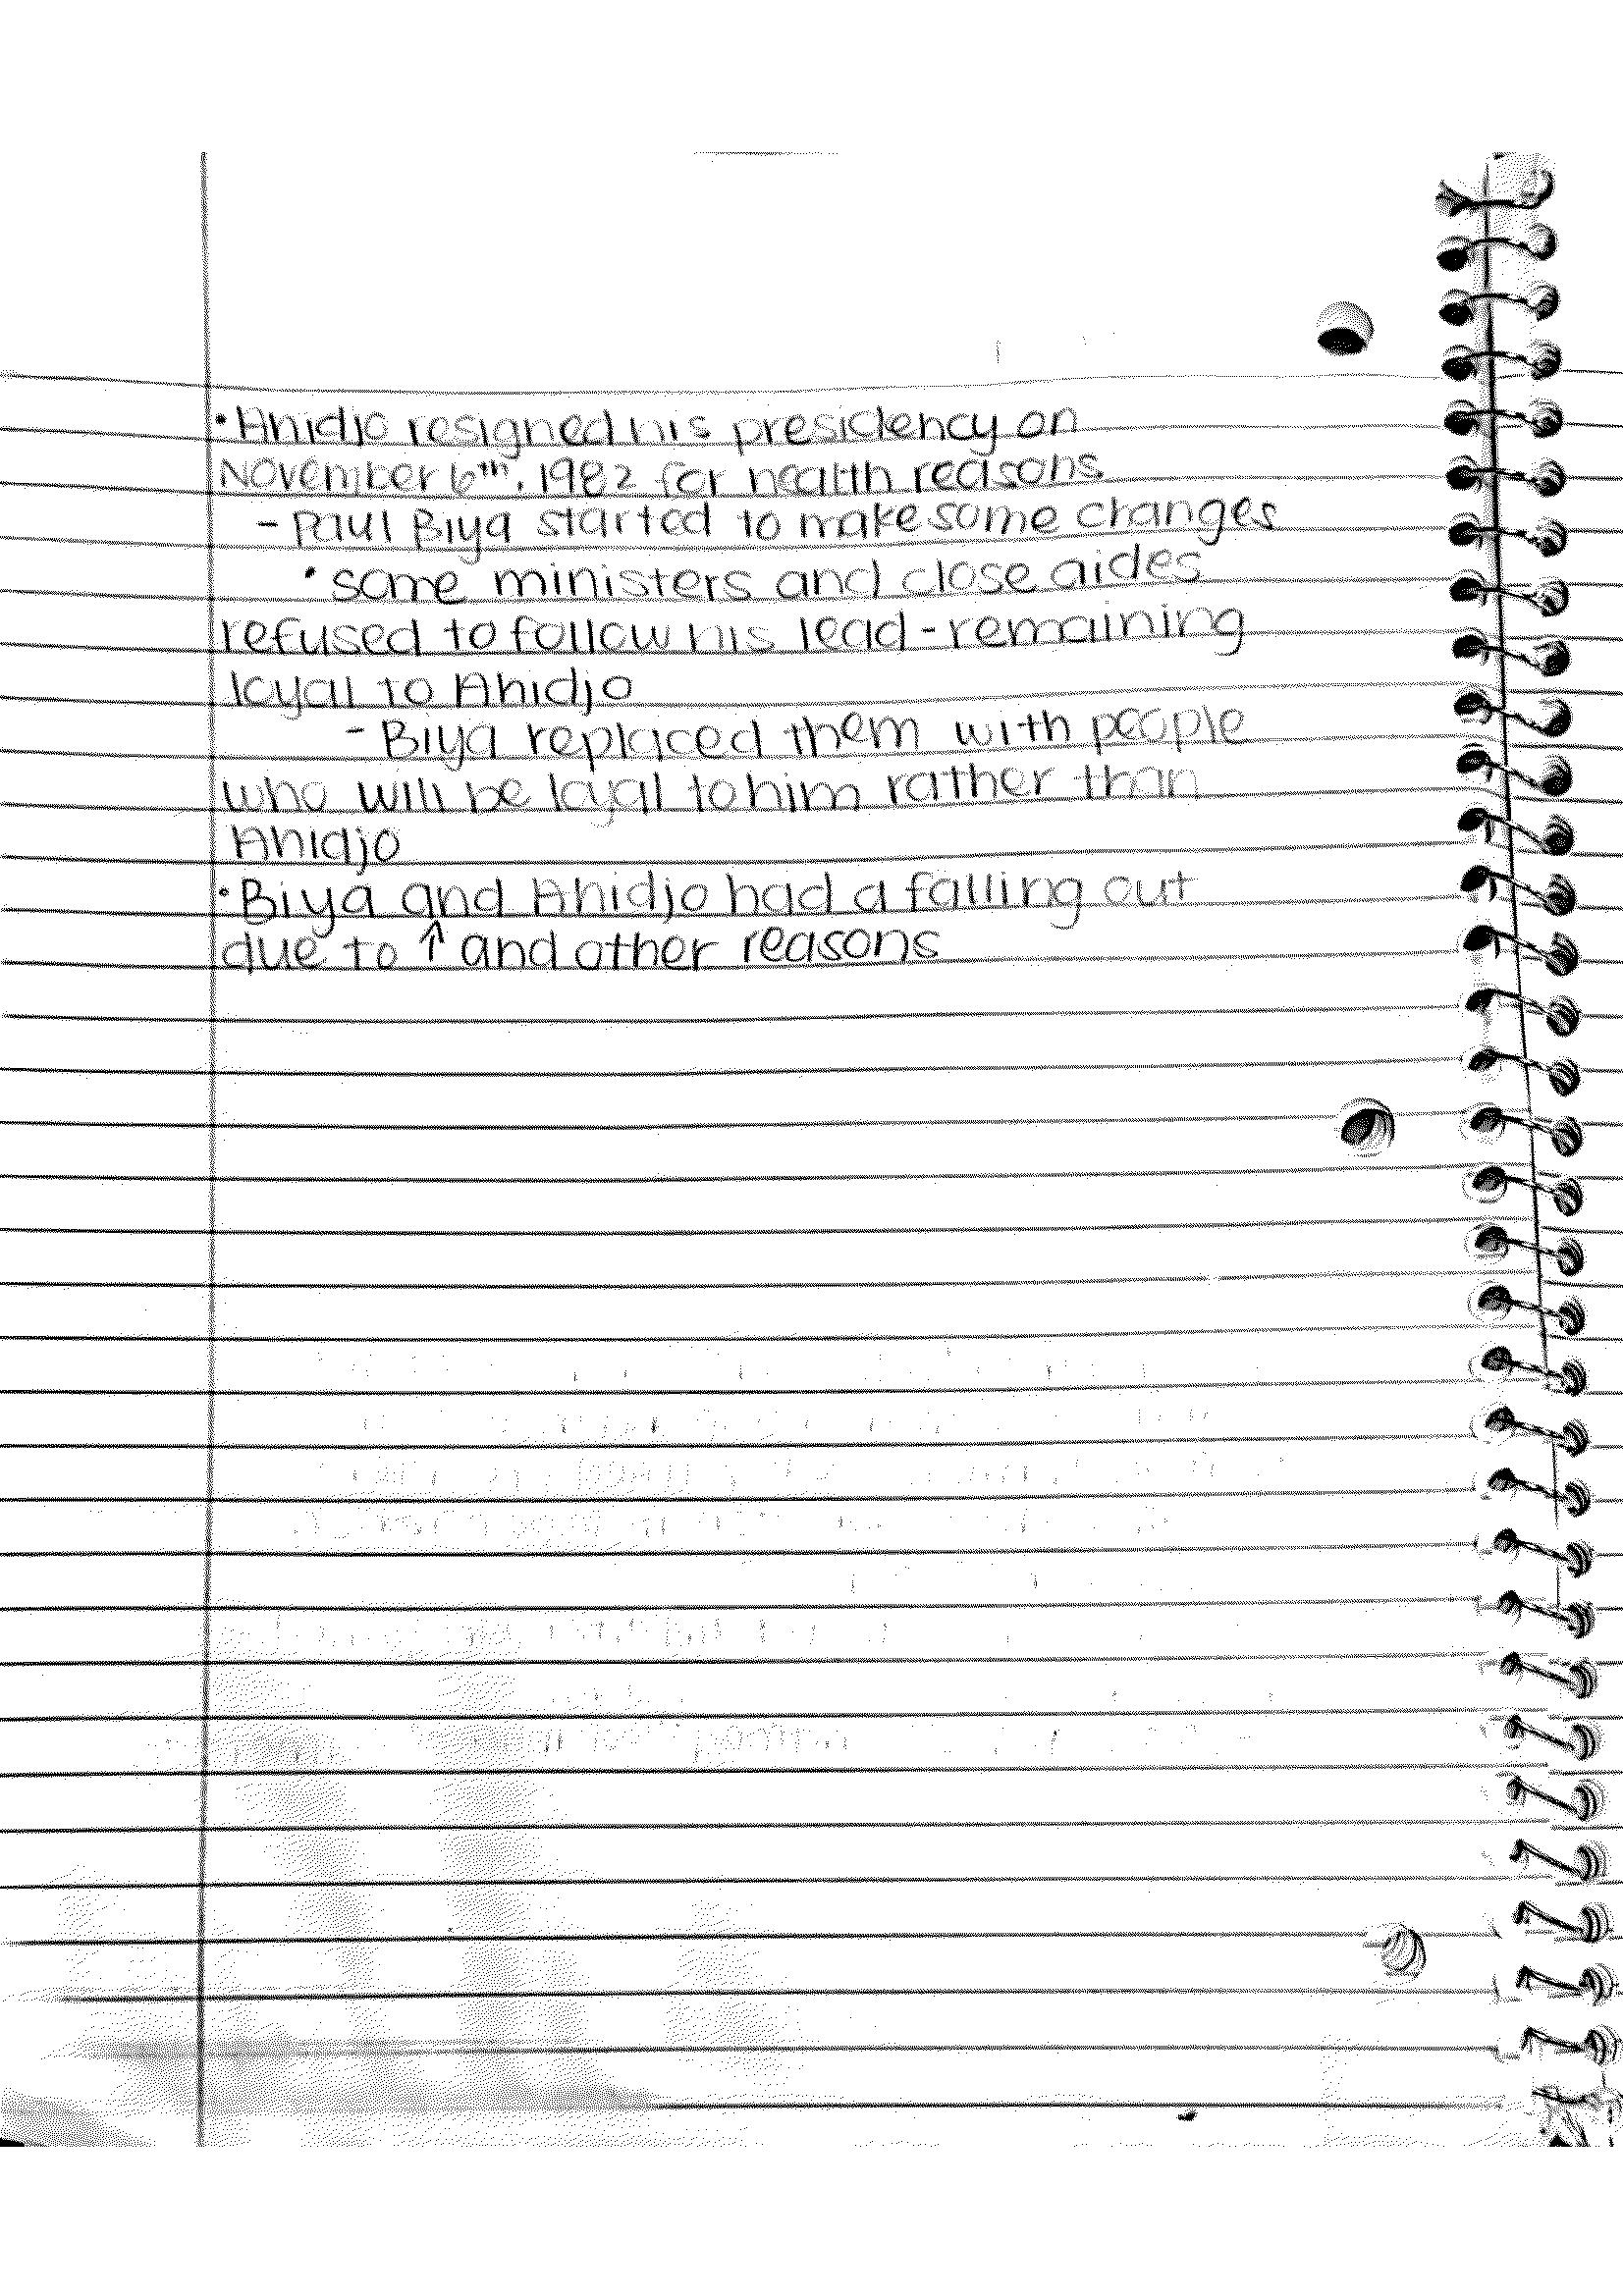 • Ahidjo resigned his presidency on
November 6th, 1982 for health reasons
- Paul Biya started to make some changes
• some ministers and close aides
refused to follow his lead - remaining
loyal to Ahidjo
- Biya replaced them with people
who will be loyal to him rather than
Ahidjo
• Biya and Ahidjo had a falling out
due to ↑ and other reasons